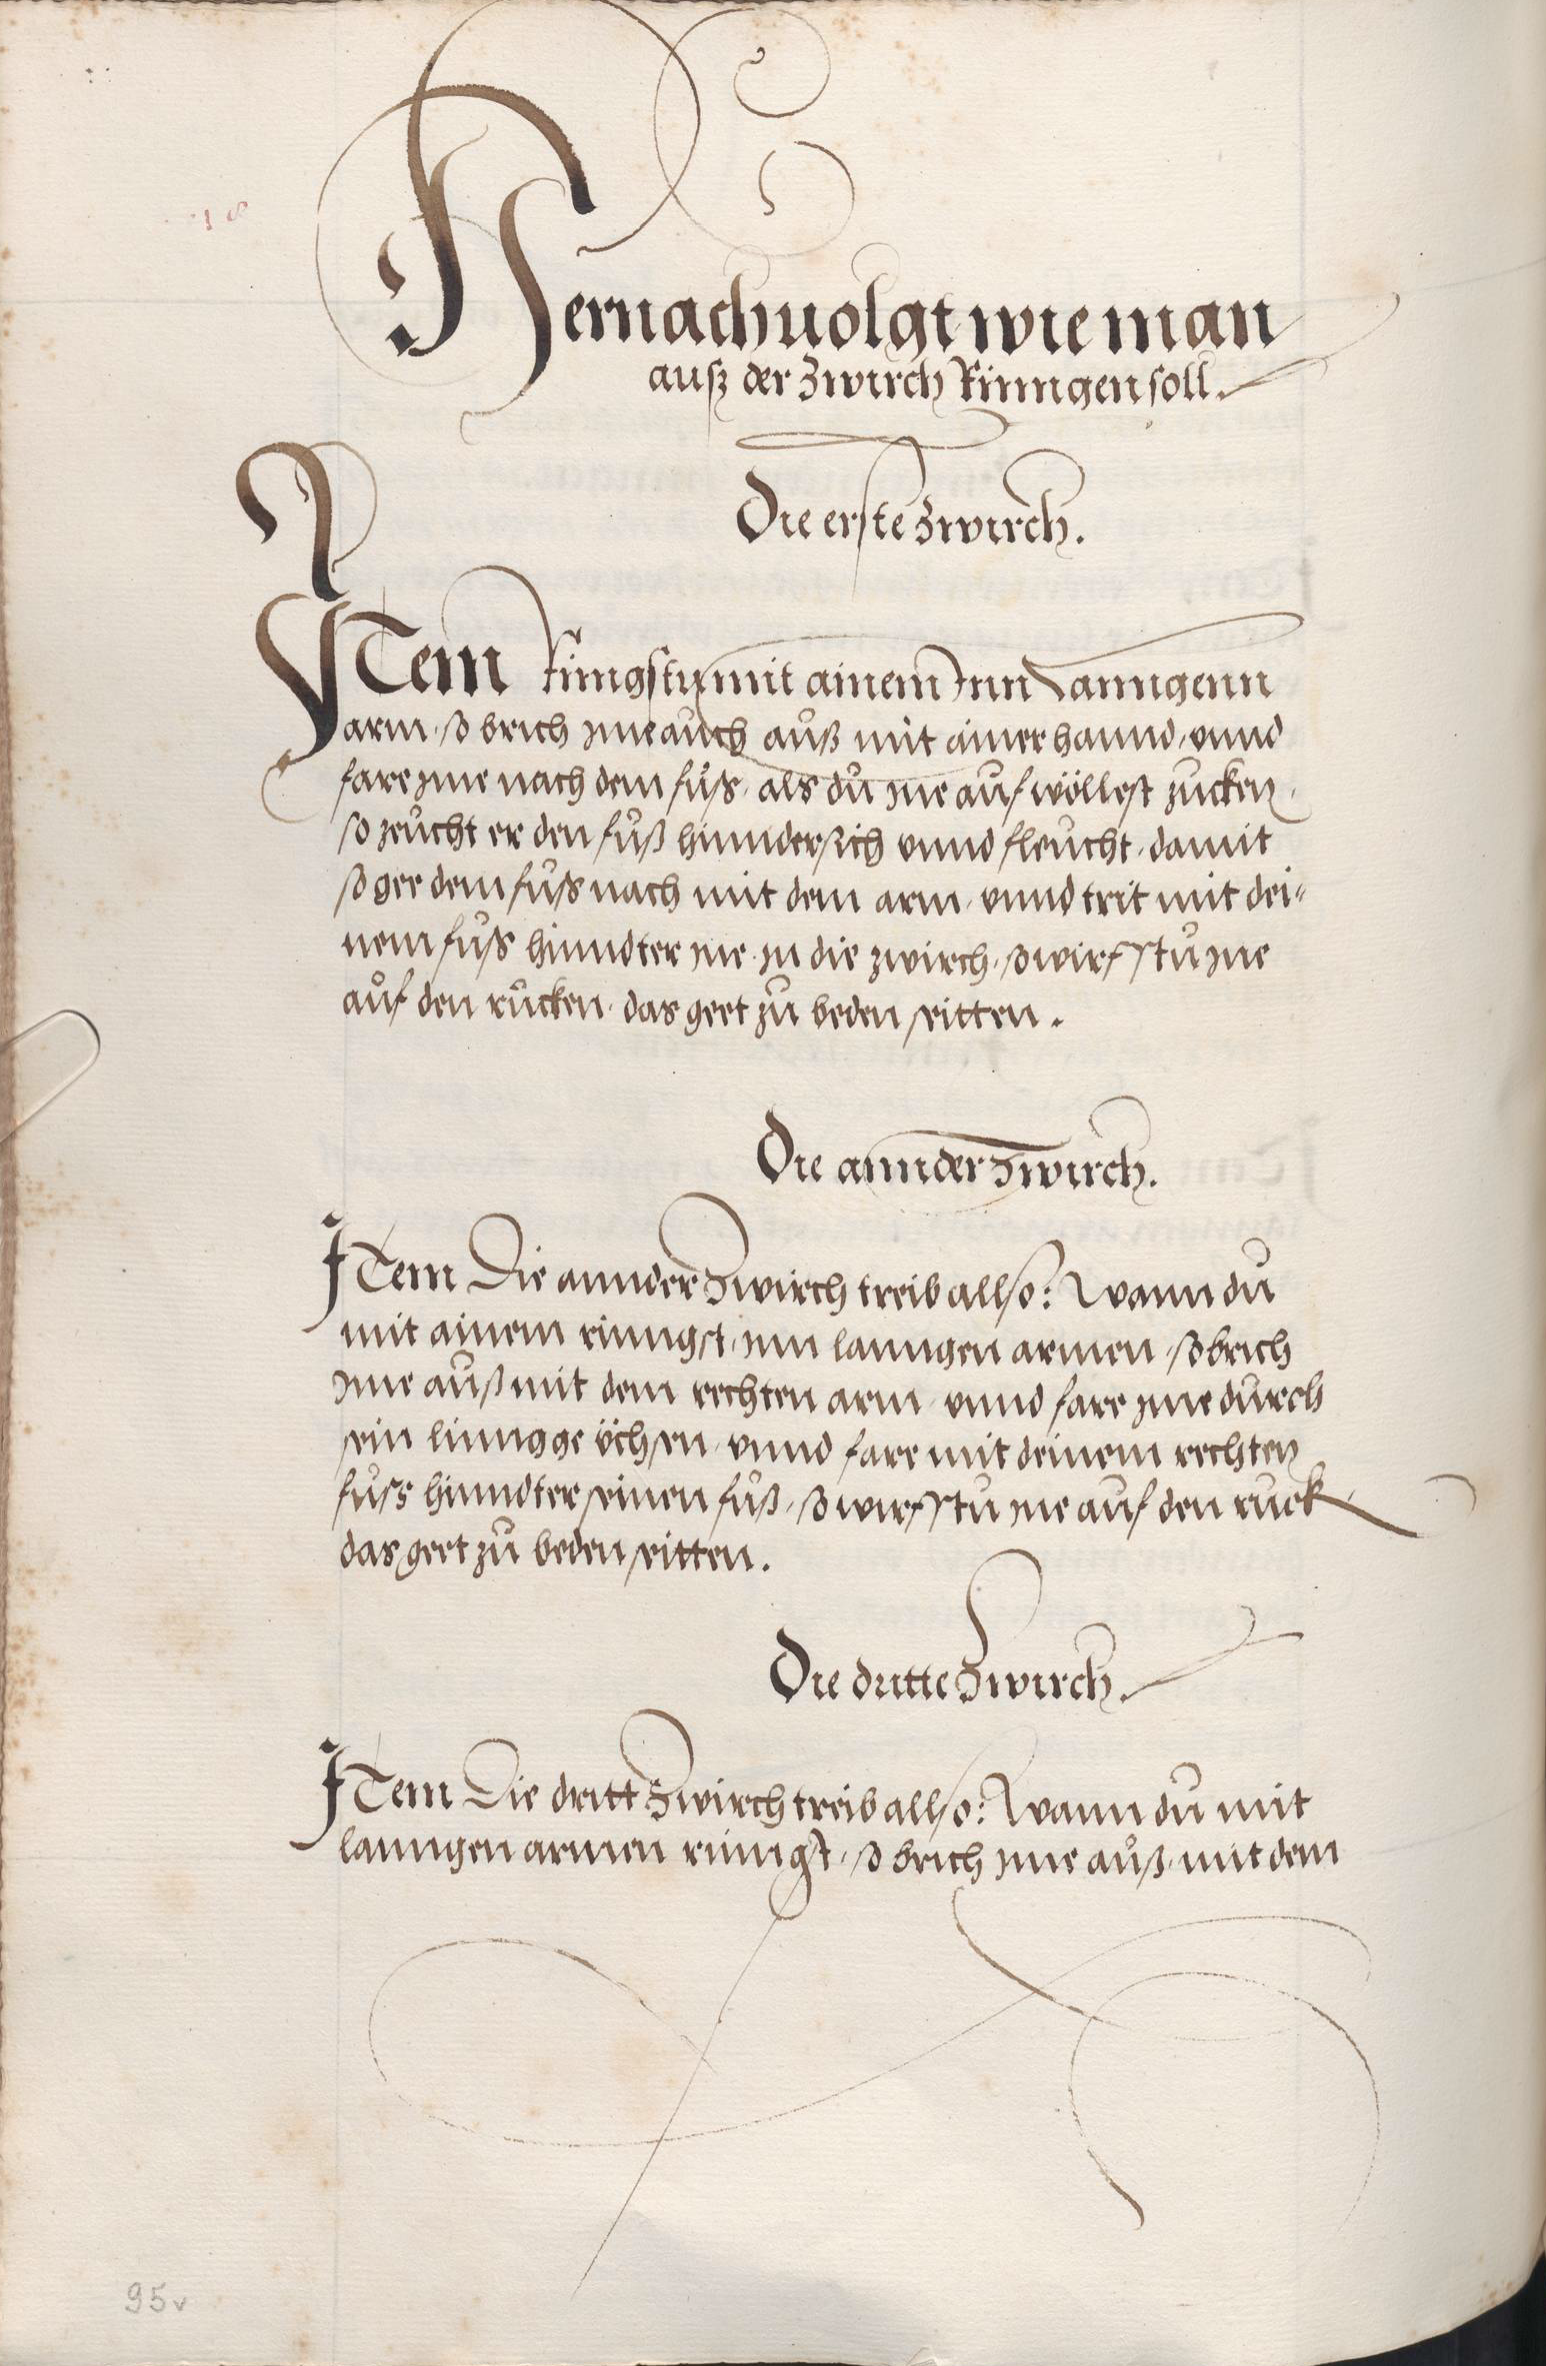 18
Hernachuolgt wie man
auß der Zwirch Rinngen soll.
Die erste Zwirch.
ITem Ringstu mit ainem Inn Lanngenn
arm, so brich jme auch auß mit ainer hannd, vnnd
fare jme nach dem fuß, als du jne auf wöllest zucken,
so zeucht er den fuß hinndersich vnnd fleucht, damit
so gee dem fuß nach mit dem arm, vnnd trit mit dei=
nem fuß hinndter jne, jn die zwirch, so wirfstu jne
auf den rücken, das geet zu beden seitten.
Die annder Zwirch.
ITem Die annder Zwirch treib allso: Wann du
mit ainem rinngst, jnn lanngen armen, so brich
jme auß mit dem rechten arm, vnnd fare jme durch
sein lingge üchsen, vnnd fare mit deinem rechten
fuss hinndter seinen fuß, so wirfstu jne auf den ruck
das geet zu beden seitten.
Die dritte Zwirch.
ITem Die dritt Zwirch treib allso: Wann du mit
lanngen armen rinngst, so brich jme auß, mit dem
95v